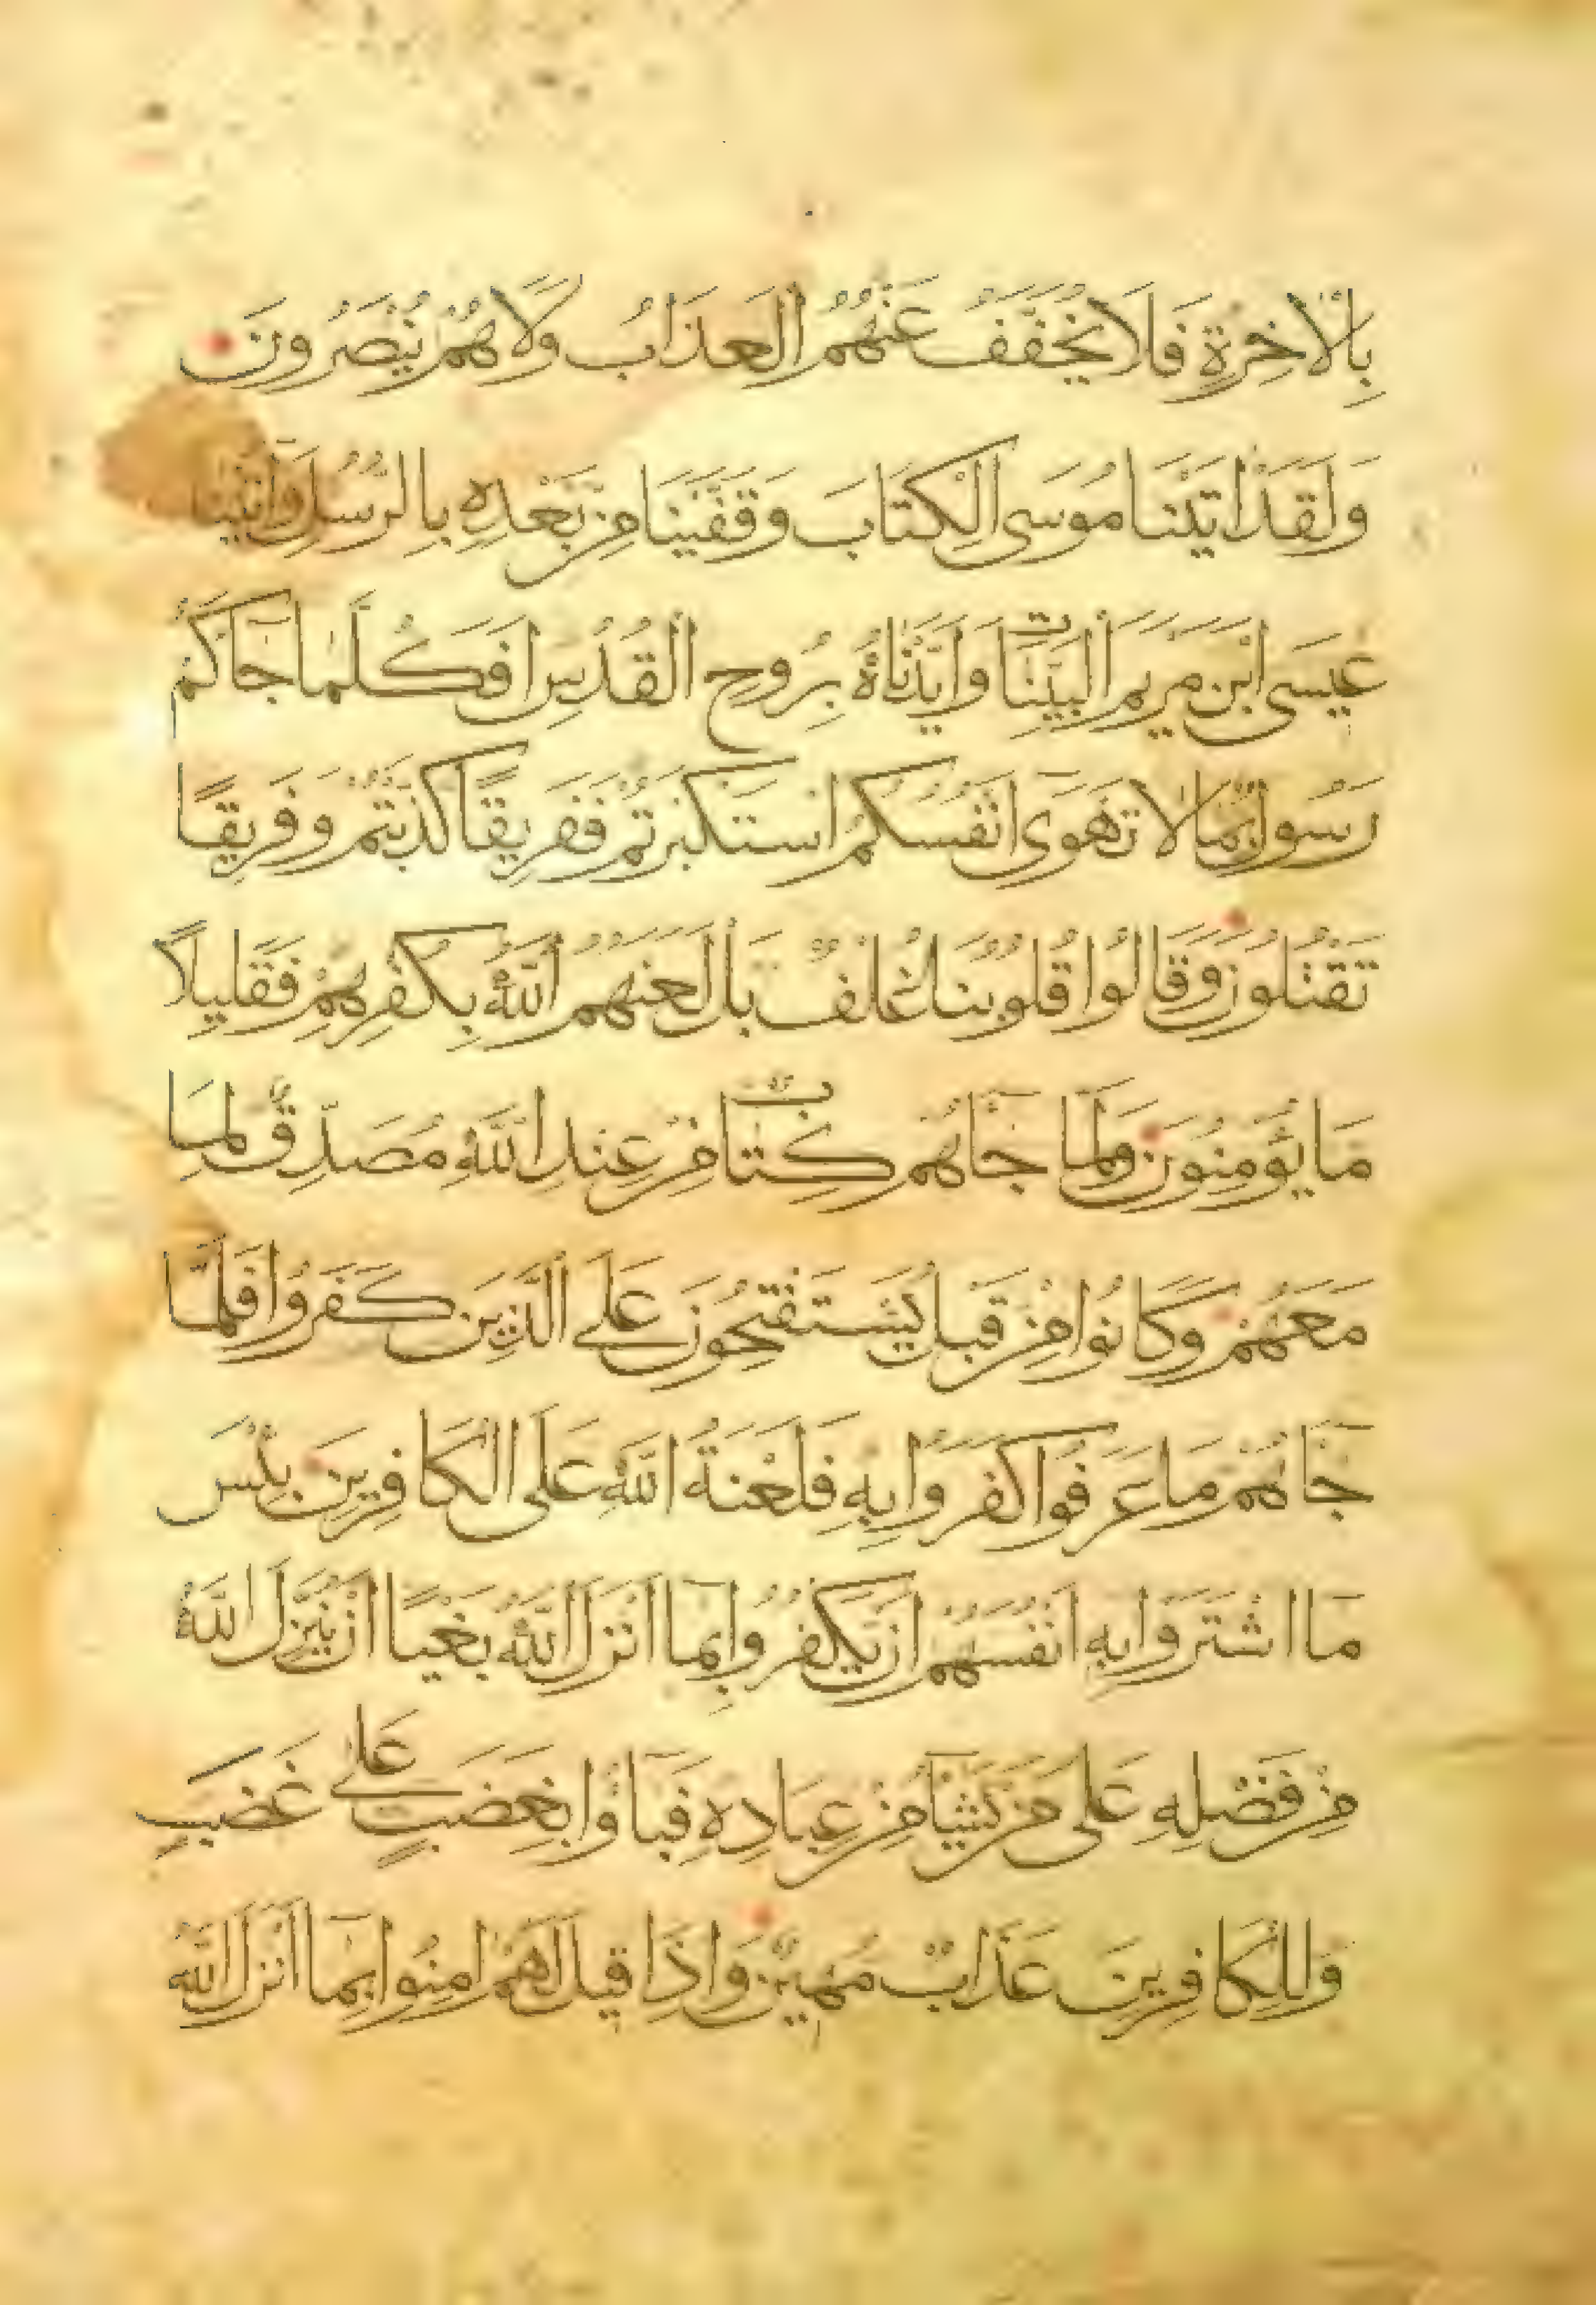 بِالْاخِرَةِ فَلَا يُخَفَّفُ عَنْهُمُ الْعَذَابُ وَلَا هُمْ يُنْصَرُونَ
وَلَقَدْ اتَيْنَا مُوسَى الْكِتَابَ وَقَفَّيْنَا مِنْ بَعْدِهِ بِالرُّسُلِ وَاتَيْنَا
عِيسَى ابْنَ مَرْيَمَ الْبَيِّنَاتِ وَايَّدْنَاهُ بِرُوحِ الْقُدُسِ افَكُلَّمَا جَاكُمْ
رَسُولٌ بِمَا لَا تَهْوَى انْفُسُكُمُ اسْتَكْبَرْتُمْ فَفَرِيقًا كَذَّبْتُمْ وَفَرِيقًا
تَقْتُلُونَ وَقَالُوا قُلُوبُنَا غُلْفٌ بَلْ لَعَنَهُمُ اللَّهُ بِكُفْرِهِمْ فَقَلِيلًا
مَا يُؤْمِنُونَ وَلَمَّا جَاهُمْ كِتَابٌ مِنْ عِنْدِ اللَّهِ مُصَدِّقٌ لِمَا
مَعَهُمْ وَكَانُوا مِنْ قَبْلُ يَسْتَفْتِحُونَ عَلَى الَّذِينَ كَفَرُوا فَلَمَّا
جَاهُمْ مَا عَرَفُوا كَفَرُوا بِهِ فَلَعْنَةُ اللَّهِ عَلَى الْكَافِرِينَ بِئْسَ
مَا اشْتَرَوْا بِهِ انْفُسَهُمْ انْ يَكْفُرُوا بِمَا انْزَلَ اللَّهُ بَغْيًا انْ يُنَزِّلَ اللَّهُ
مِنْ فَضْلِهِ عَلَى مَنْ يَشَا مِنْ عِبَادِهِ فَبَاؤُا بِغَضَبٍ عَلَى غَضَبٍ
وَلِلْكَافِرِينَ عَذَابٌ مُهِينٌ وَاذَا قِيلَ لَهُمْ امِنُوا بِمَا انْزَلَ اللَّهُ